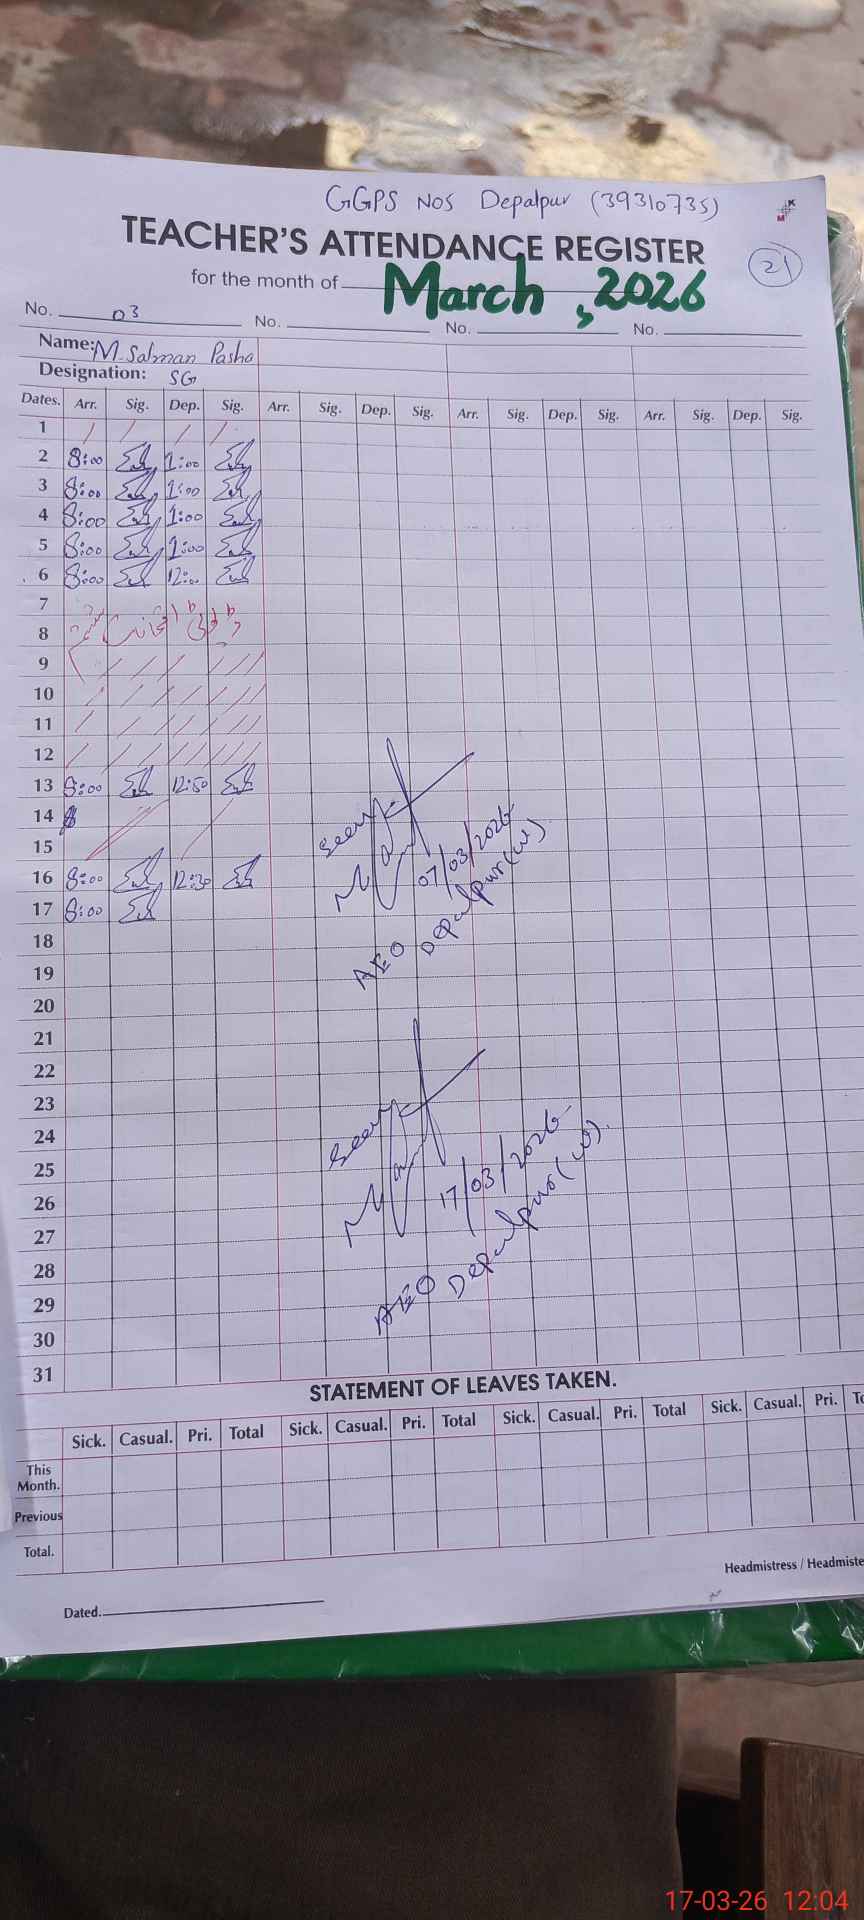 GGPS NO5 Depalpur (39310735)
K
M
TEACHER'S ATTENDANCE REGISTER
21
for the month of March, 2026
No. 03 No. No. No.
Name: M. Salman Pasha
Designation: SG
Dates. Arr. Sig. Dep. Sig. Arr. Sig. Dep. Sig. Arr. Sig. Dep. Sig. Arr. Sig. Dep. Sig.
1
2 8:00 1:00
3 8:00 1:00
4 8:00 1:00
5 8:00 1:00
6 8:00 12:00
7
8
9
10
11
12
13 8:00 12:50
14 8
15
16 8:00 12:30
17 8:00
Seen
07/03/2026
AEO Depalpur (w)
18
19
20
21
22
23
24
25
26
27
28
29
30
31
Seen
17/03/2026
AEO Depalpur (w).
STATEMENT OF LEAVES TAKEN.
Sick. Casual. Pri. Total Sick. Casual. Pri. Total Sick. Casual. Pri. Total Sick. Casual. Pri.
This
Month.
Previous
Total.
Headmistress / Headmiste
Dated.
17-03-26 12:04